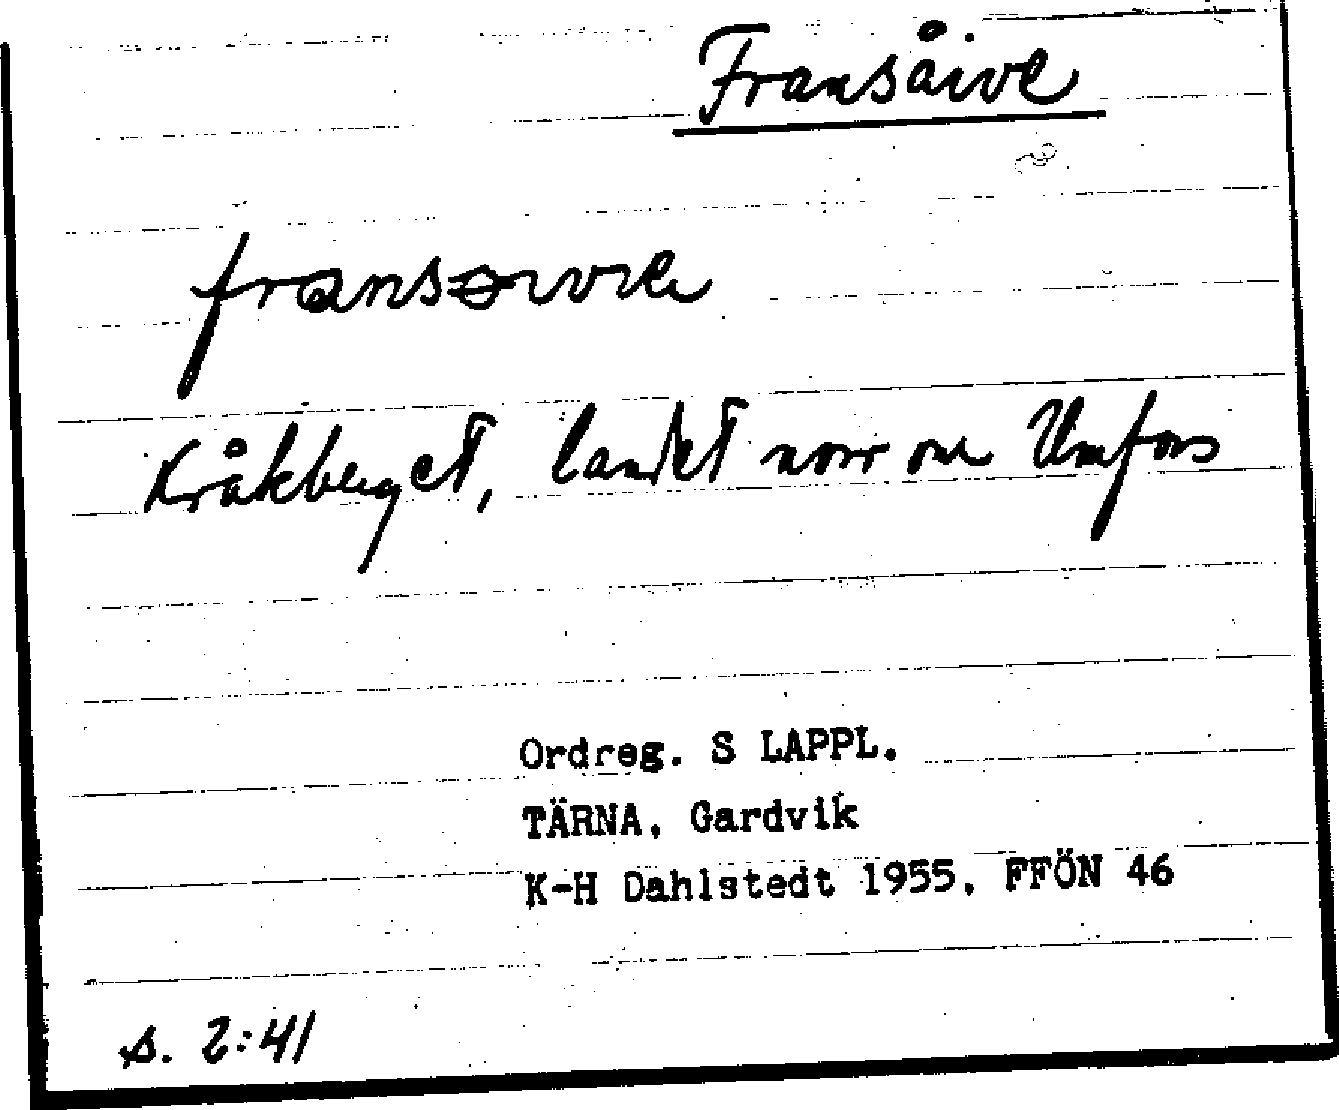 Fransåive
fransɵivve
Kråkberget, landet norr om Umfors
Ordreg. S LAPPL.
TÄRNA, Gardvik
K-H Dahlstedt 1955. FFÖN 46
s. 2:41